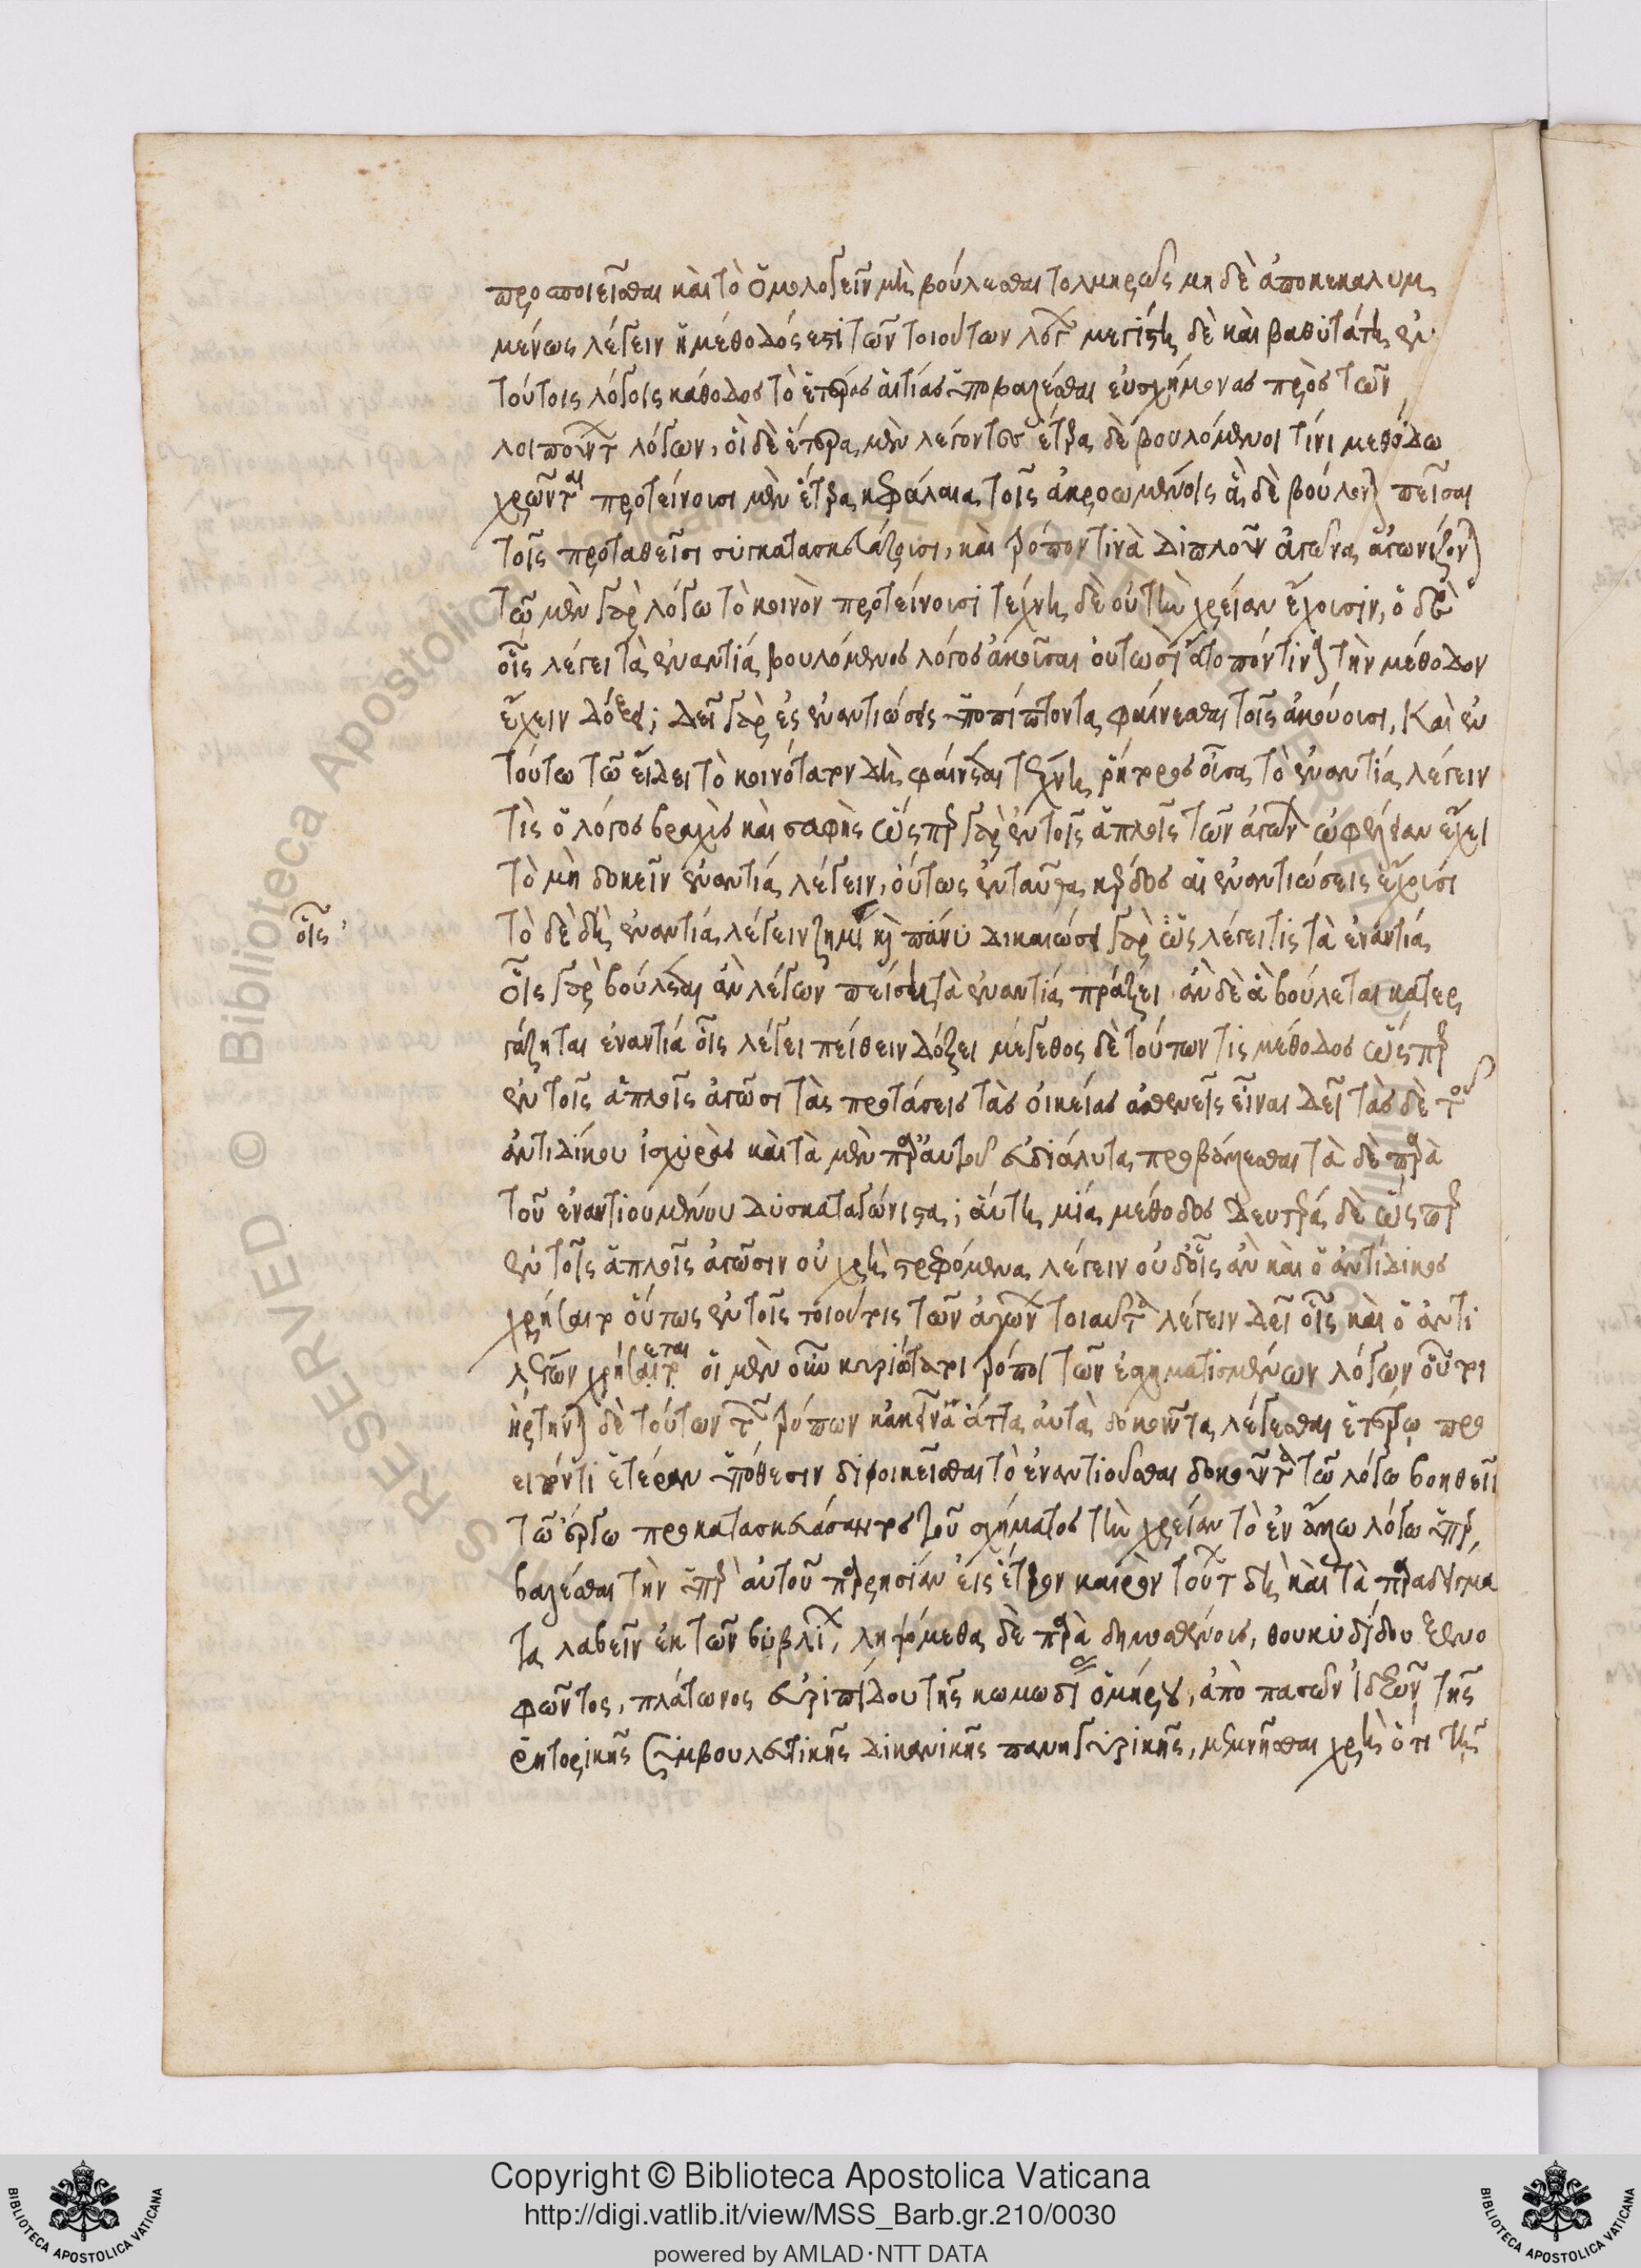 προσποιεῖσθαι καὶ τὸ ὁμολογεῖν μὴ βούλεσθαι τολμηρῶς μηδὲ ἀποκεκαλυμ
μένως λέγειν ἡ μέθοδός ἐστι τῶν τοιούτων λόγ μεγίστη δὲ καὶ βαθυτάτη ἐν
τούτοις λόγοις κάθοδος τὸ ἑτέρας αἰτίας ὑποβαλέσθαι εὐσχήμονας πρὸς τῶν
λοιπῶν τ λόγων, οἱ δὲ ἕτερα μὲν λέγοντες ἕτερα δὲ βουλόμενοι τίνι μεθόδω
χρῶνται προτείνουσι μὲν ἕτερα κεφάλαια τοῖς ἀκροωμένοις ἃ δὲ βούλονται πεῖσαι
τοῖς προταθεῖσι συγκατασκευάζουσι, καὶ τρόπον τινὰ διπλοῦν ἀγῶνα ἀγωνίζονται
τῶ μὲν γὰρ λόγω τὸ κοινὸν προτείνουσι τέχνη δὲ οὐ τὴν χρείαν ἔχουσιν, ὁ δὲ
οἷς λέγει τὰ ἐναντία βουλόμενος λόγος ἀκοῦσαι οὑτωσὶ ἄτοπον τίνα τὴν μέθοδον
ἔχειν δόξει; δεῖ γὰρ ἐς ἐναντιώσεις ὑποπίπτοντα φαίνεσθαι τοῖς ἀκούουσι, Καὶ ἐν
τούτω τῶ εἴδει τὸ κοινότατον δὴ φαίνεσθαι τέχνη ῥήτορος οὖσα τὸ ἐναντία λέγειν
τὶς ὁ λόγος βραχὺς καὶ σαφὴς ὥσπερ γὰρ ἐν τοῖς ἁπλοῖς τῶν ἀγών ὠφέλειαν ἔχει
τὸ μὴ δοκεῖν ἐναντία λέγειν, οὕτως ἐνταῦθα κέρδος αἱ ἐναντιώσεις ἔχουσι
οἷς
τὸ δὲ δὴ ἐναντία λέγειν ζημία καὶ πάνυ δικαιώσει γὰρ ὡς λέγει τὶς τὰ ἐναντία
οἷς γὰρ βούλεται ἂν λέγων πείση τὰ ἐναντία πράξει ἂν δὲ ἃ βούλεται κατερ
γάζηται ἐναντία οἷς λέγει πείθειν δόξει μέγεθος δὲ τούτων τις μέθοδος ὥσπερ
ἐν τοῖς ἁπλοῖς ἀγῶσι τὰς προτάσεις τὰς οἰκείας ἀσθενεῖς εἶναι δεῖ τὰς δὲ τοῦ
ἀντιδίκου ἰσχυρὰς καὶ τὰ μὲν παρ' αὐτοῦ εὐδιάλυτα προβάλλεσθαι τὰ δὲ παρὰ
τοῦ ἐναντιουμένου δυσκαταγώνιστα; αὕτη μία μέθοδος δευτέρα δὲ ὥσπερ
ἐν τοῖς ἁπλοῖς ἀγῶσιν οὐ χρὴ στρεφόμενα λέγειν οὐδ' οἷς ἂν καὶ ὁ ἀντίδικος
χρήσαιτο οὕτως ἐν τοῖς τοιούτοις τῶν ἀγών τοιαῦτα λέγειν δεῖ οἷς καὶ ὁ ἀντι
λέγων χρήσαιτο εται οἱ μὲν οὖν κυριώτατοι τρόποι τῶν ἐσχηματισμένων λόγων οὗτοι
ἤρτηνται δὲ τούτων τῶν τρόπων κἀκεῖνα ἄττα αὐτὰ δοκοῦντα λέγεσθαι ἑτέρω προ
ειπόντι ἑτέραν ὑπόθεσιν διοικεῖσθαι τὸ ἐναντιοῦσθαι δοκοῦντα τῶ λόγω βοηθεῖν
τῶ ἔργω προκατασκευάσαντος τοῦ σχήματος τὴν χρείαν τὸ ἐν ἄλλω λόγω ὑπερ
βαλέσθαι τὴν ὑπὲρ αὐτοῦ παρρησίαν εἰς ἕτερον καιρὸν τούτ δὴ καὶ τὰ παραδείγμα
τα λαβεῖν ἐκ τῶν βυβλί, ληψόμεθα δὲ παρὰ δημοσθένους, θουκυδίδου ξενο
φῶντος, πλάτωνος εὐριπίδου τῆς κωμωδί ὁμήρου, ἀπὸ πασῶν ἰδεῶν τῆς
ῥητορικῆς συμβουλευτικῆς δικανικῆς πανηγυρικῆς, μεμνῆσθαι χρὴ ὅτι τῆς
Copyright © Biblioteca Apostolica Vaticana
http://digi.vatlib.it/view/MSS_Barb.gr.210/0030
powered by AMLAD·NTT DATA